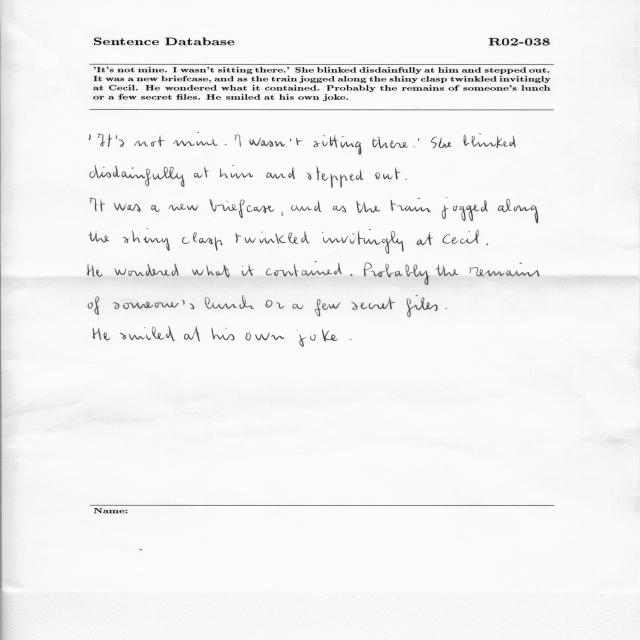 Sentence Database R02-038
'It's not mine. I wasn't sitting there.' She blinked disdainfully at him and stepped out.
It was a new briefcase, and as the train jogged along the shiny clasp twinkled invitingly
at Cecil. He wondered what it contained. Probably the remains of someone's lunch
or a few secret files. He smiled at his own joke.
'It's not mine. I wasn't sitting there.' She blinked
disdainfully at him and stepped out.
It was a new briefcase, and as the train jogged along
the shiny clasp twinkled invitingly at Cecil.
He wondered what it contained. Probably the remains
of someone's lunch or a few secret files.
He smiled at his own joke.
Name: